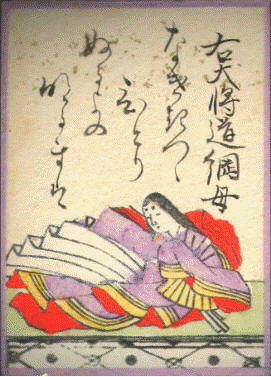 右大将道綱母
なけきつゝ
ひとり
ぬるよの
あくるまは